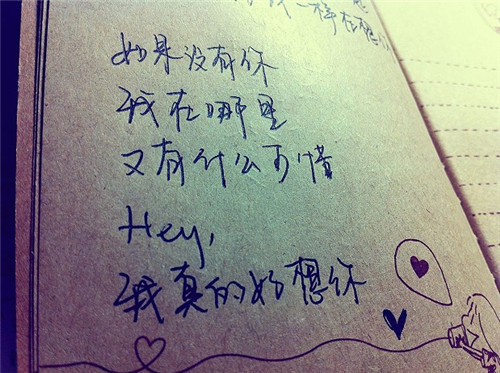 一样在想
如果没有你
我在哪里
又有什么可惜
Hey,
我真的好想你